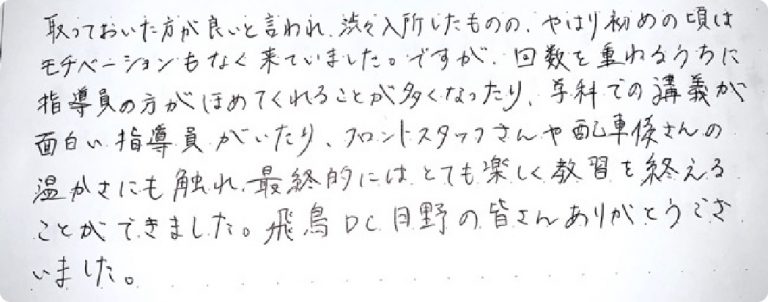 取っておいた方が良いと言われ、渋々入所したものの、やはり初めの頃は
モチベーションもなく来ていました。ですが、回数を重ねるうちに
指導員の方がほめてくれることが多くなったり、学科での講義が
面白い指導員がいたり、フロントスタッフさんや配車係さんの
温かさにも触れ、最終的にはとても楽しく教習を終える
ことができました。飛鳥DC日野の皆さんありがとうござ
いました。